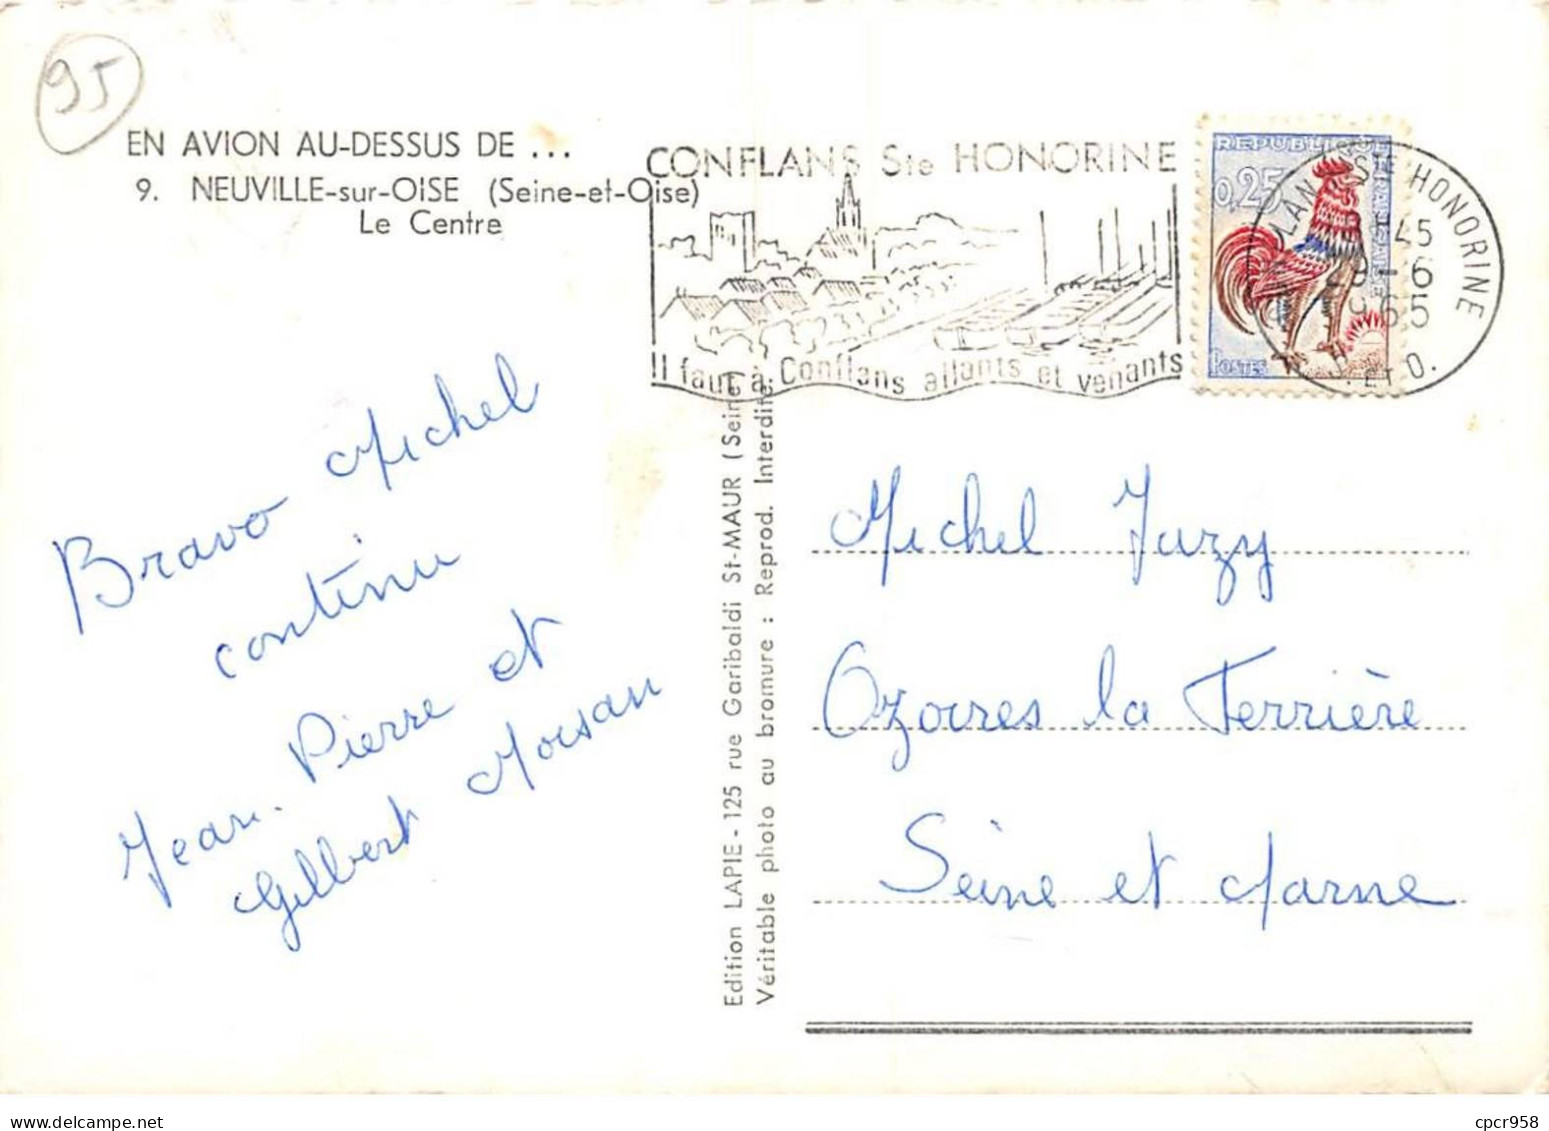 95
EN AVION AU-DESSUS DE ...
9. NEUVILLE-sur-OISE (Seine-et-Oise)
Le Centre
CONFLANS Ste HONORINE
Il faut à Conflans allants et venants
REPUBLIQUE
0,25
POSTES
STE HONORINE
45
9-6
1965
ET O.
Bravo Michel
continu
Jean-Pierre et
Gilbert Moisan
Edition LAPIE - 125 rue Garibaldi St-MAUR (Seine)
Véritable photo au bromure : Reprod. Interdite.
Michel Jazy
Ozoires la Terrière
Seine et Marne
cpcr958